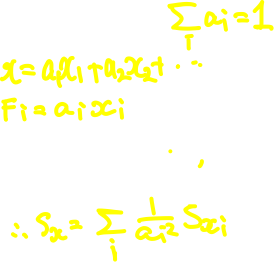 ∑ᵢ aᵢ = 1
x = a₁x₁ + a₂x₂ + ...
Fᵢ = aᵢxᵢ
∴ Sₓ = ∑ᵢ 1/aᵢ² Sxᵢ